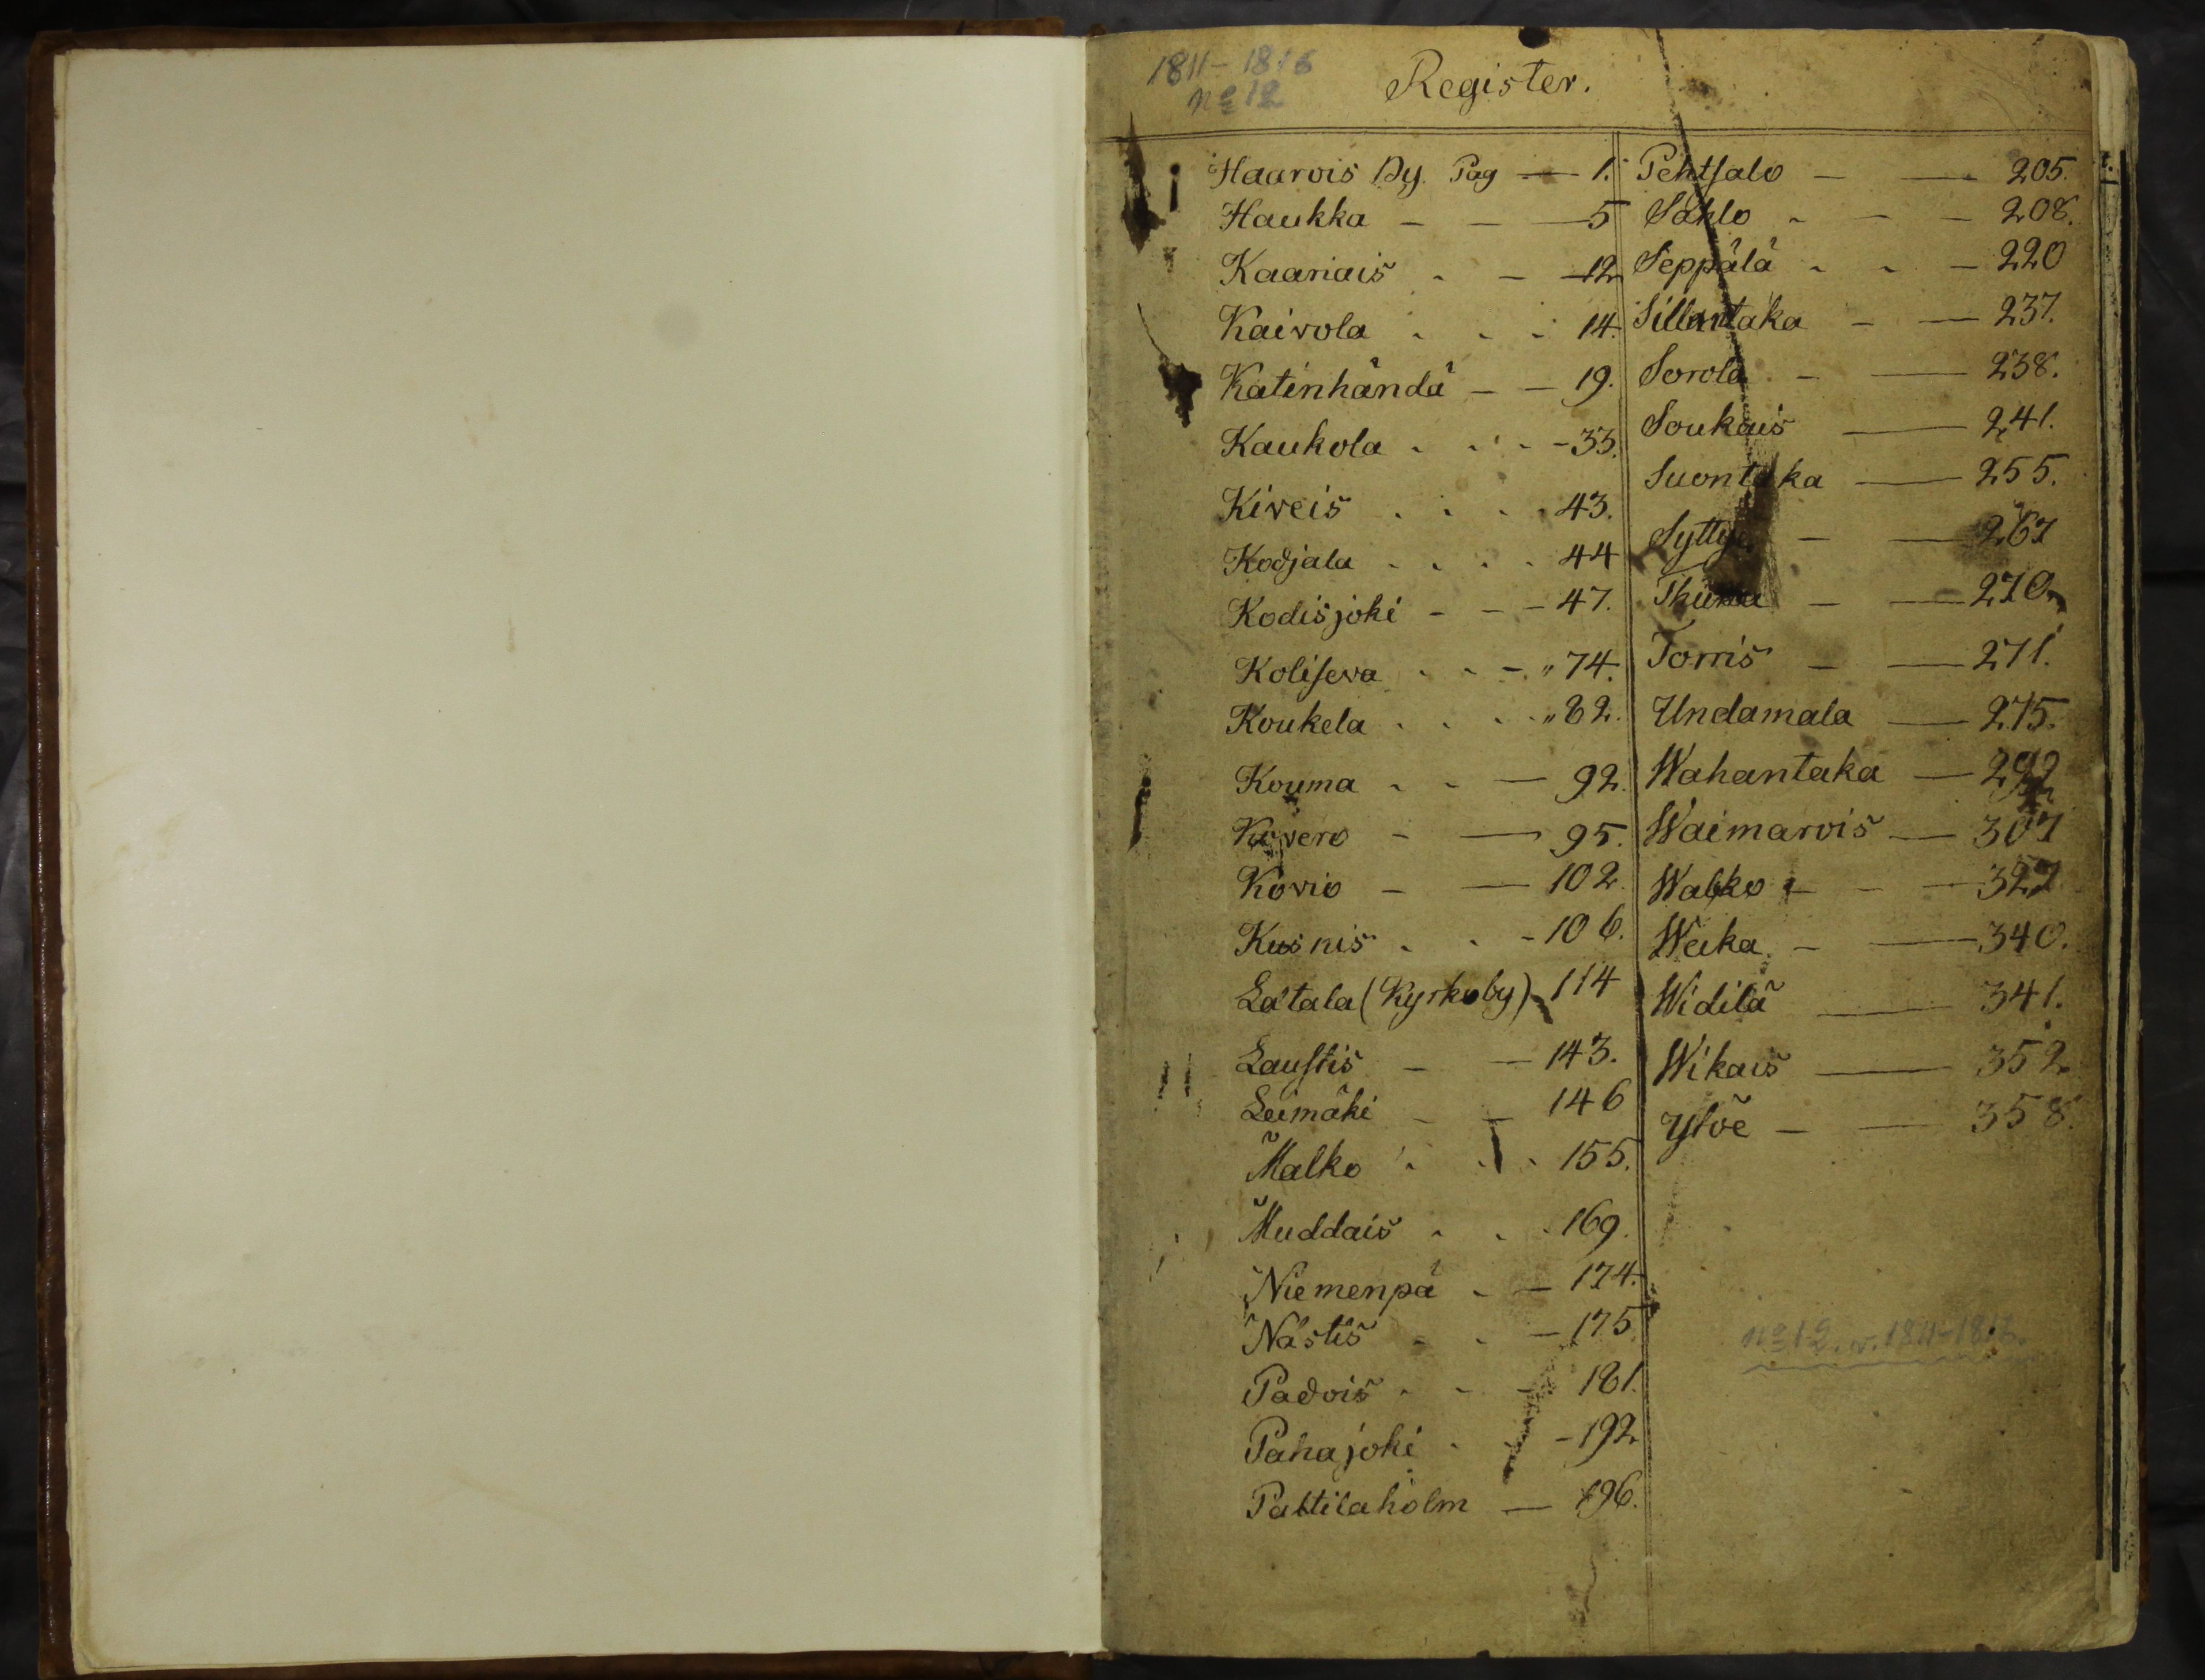 1811-1816
nº 12
Register.
Haarois By. Pag — 1.
Haukka - - — 5
Kaariais - - — 12
Kairola - - - 14.
Katinhändä - - 19.
Kaukola - - - - 33.
Kiveis - - - 43.
Kodjala - - - - 44
Kodisjoki - - - 47.
Koliseva - - - " 74.
Koukela - - - " 82.
Kouma - - — 92.
Kovero - — 95.
Kovio - — 102
Kusnis - - - 106.
Latala (Kyrkoby) - 114
Laustis - — 143.
Leimäki - - 146
Malko - - - 155.
Muddais - - - 169.
Niemenpä - - 174.
Nästis - - - 175
Padois - - - 181.
Pahajoki - - 192
Pattilaholm — 196.
Pehtsalo - — 205.
Sahlo - - - 208.
Seppälä - - - 220
Sillantaka - — 237.
Sorola - — 238.
Soukais — 241.
Suontaka — 255.
- — 267
- — 270.
Torris - — 271.
Undamala — 275.
Wahantaka — 292
Waimarois — 307
Walko - - - 327
Weika - — 340.
Widilä — 341.
Wikais — 352
Ylöe - — 358.
nº 12. v. 1811-1816.